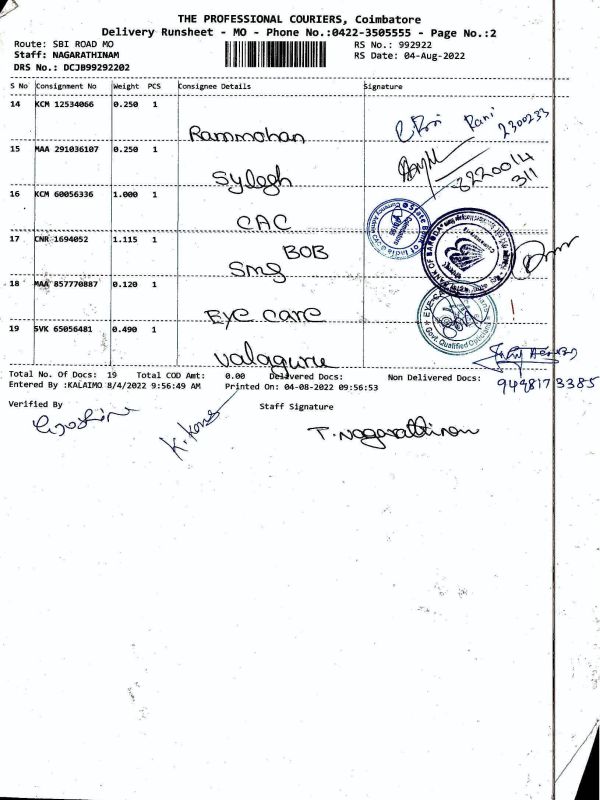 THE PROFESSIONAL COURIERS, Coimbatore
Delivery Runsheet - MO - Phone No.:0422-3505555 - Page No.:2
Route: SBI ROAD MO RS No.: 992922
Staff: NAGARATHINAM RS Date: 04-Aug-2022
DRS No.: DCJB99292202
S No Consignment No Weight PCS Consignee Details Signature
14 KCM 12534066 0.250 1
Rammohan Rani 2300233
15 MAA 291036107 0.250 1
Sylegh 8220014
311
16 KCM 60056336 1.000 1
CAC
17 CNR 1694052 1.115 1
BOB
Smg
18 MAA 857770887 0.120 1
Eye care
19 SVK 65056481 0.490 1
valaguru
Total No. Of Docs: 19 Total COD Amt: 0.00 Delivered Docs: Non Delivered Docs:
9498173385
Entered By :KALAIMO 8/4/2022 9:56:49 AM Printed On: 04-08-2022 09:56:53
Verified By Staff Signature
T. Nagarathinam